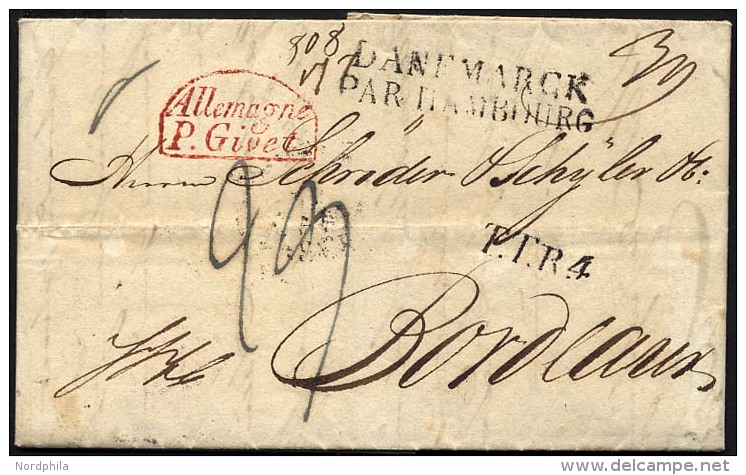 808
DANEMARCK
PAR HAMBOURG
Allemagne
P. Givet
Herrn Schröder & Schÿler & Co:
T.T.R.4
Bordeaux
Nordphila
delcampe.net